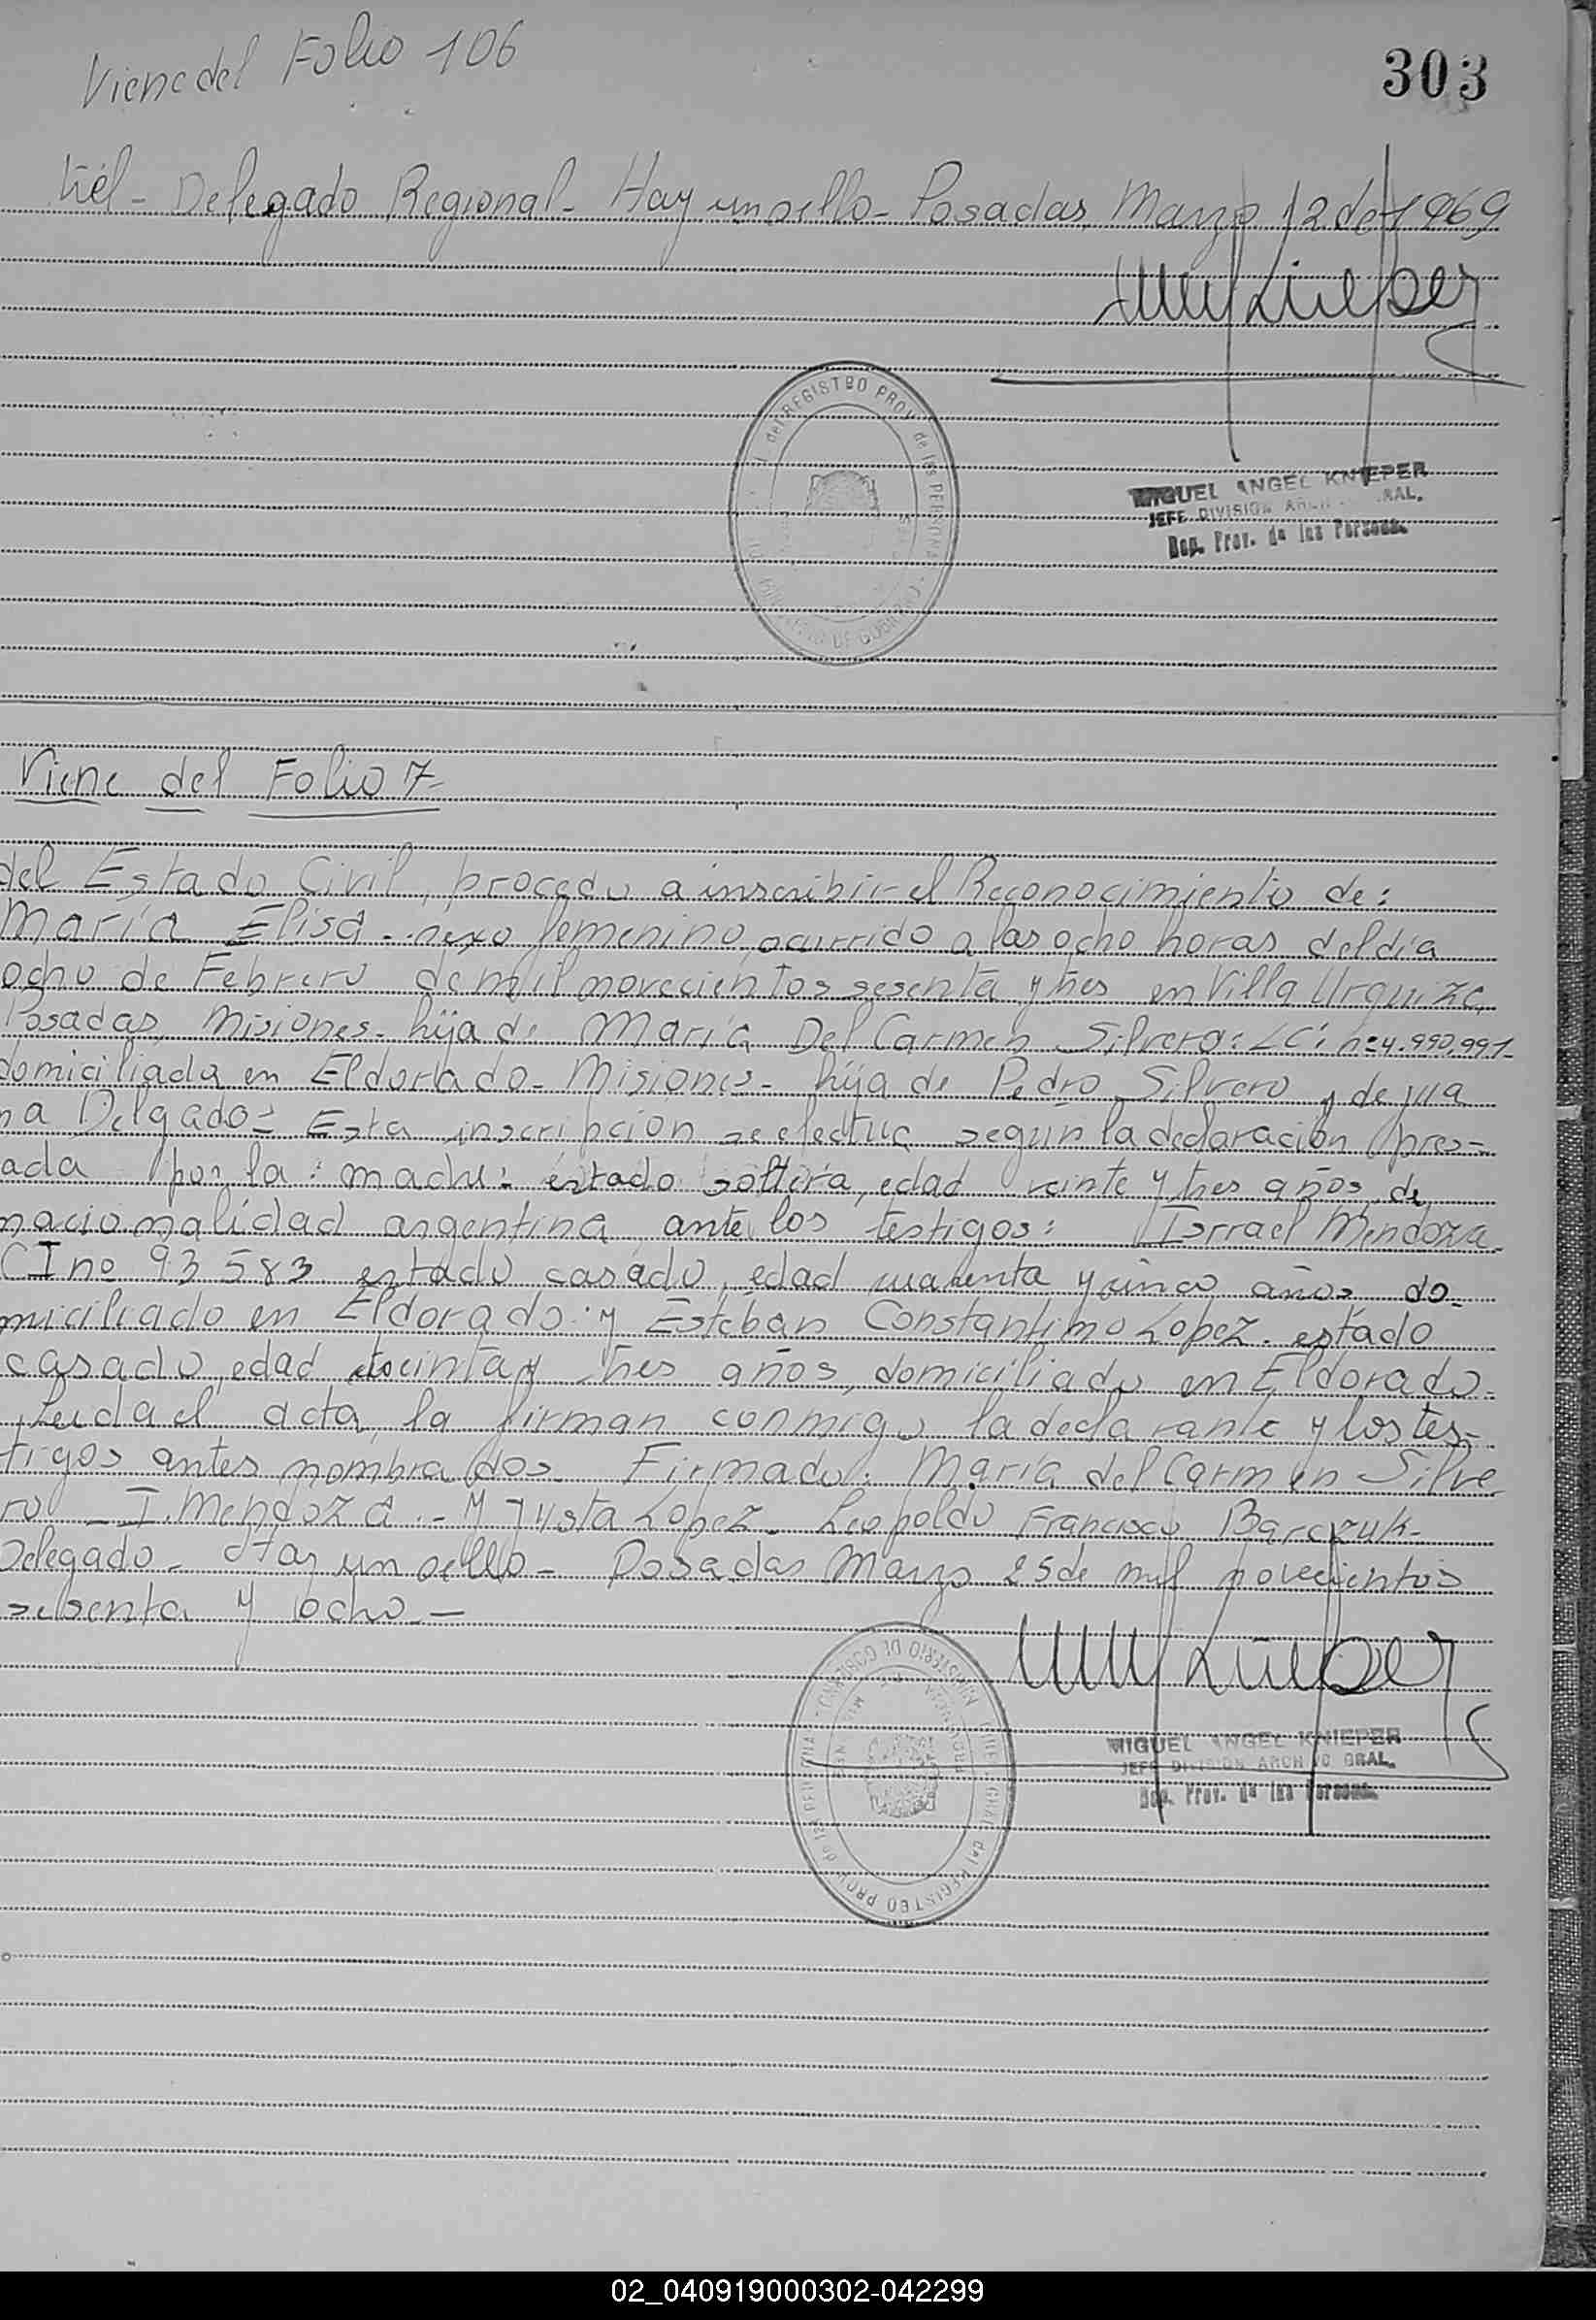 Viene del Folio 106
303
kiel - Delegado Regional - Hay un sello - Posadas, Marzo 12 de 1969
MIGUEL ANGEL KNIEPER
JEFE DIVISION GRAL.
Rep. Prov. de las Personas.
del REGISTRO PROV. de las PERSONAS
Viene del Folio 7-
del Estado Civil, procedo a inscribir el Reconocimiento de:
María Elisa - sexo femenino, ocurrido a las ocho horas del día
ocho de Febrero de mil novecientos sesenta y tres en Villa Urquiza,
Posadas, Misiones - hija de María Del Carmen Silvero: LC: nº 4.990.991-
domiciliada en Eldorado - Misiones - hija de Pedro Silvero y de Jua
na Delgado = Esta inscripción se efectua según la declaración pres-
ada por la: madre: estado soltera, edad veinte y tres años, de
nacionalidad argentina, ante los testigos: Isrrael Mendoza
CI nº 93583 estado casado, edad cuarenta y cinco años, do-
miciliado en Eldorado: y Esteban Constantino Lopez - estado
casado, edad treinta y tres años, domiciliado en Eldorado =
Leida el acta, la firman conmigo la declarante y los tes-
tigos antes nombrados. Firmado: María del Carmen Silve
ro - I. Mendoza - y Justa Lopez - Leopoldo Francisco Barczuk -
Delegado - Hay un sello - Posadas Marzo 25 de mil novecientos
sesenta y ocho -
MINISTERIO DE GOBIERNO - DIRE. GRAL del REGISTRO PROV. de las PERSONAS
MIGUEL ANGEL KNIEPER
JEFE DIVISION ARCHIVO GRAL.
Rep. Prov. de las Personas.
02_040919000302-042299